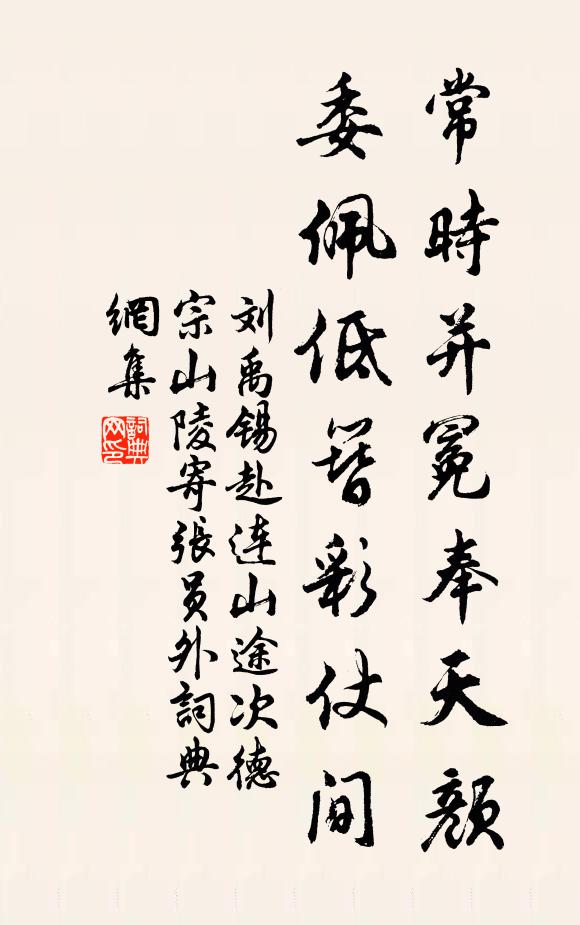 常時并冕奉天顔
委佩低簪彩仗间
刘禹锡赴连山途次德
宗山陵寄張员外詞典
網集
詞典
网印